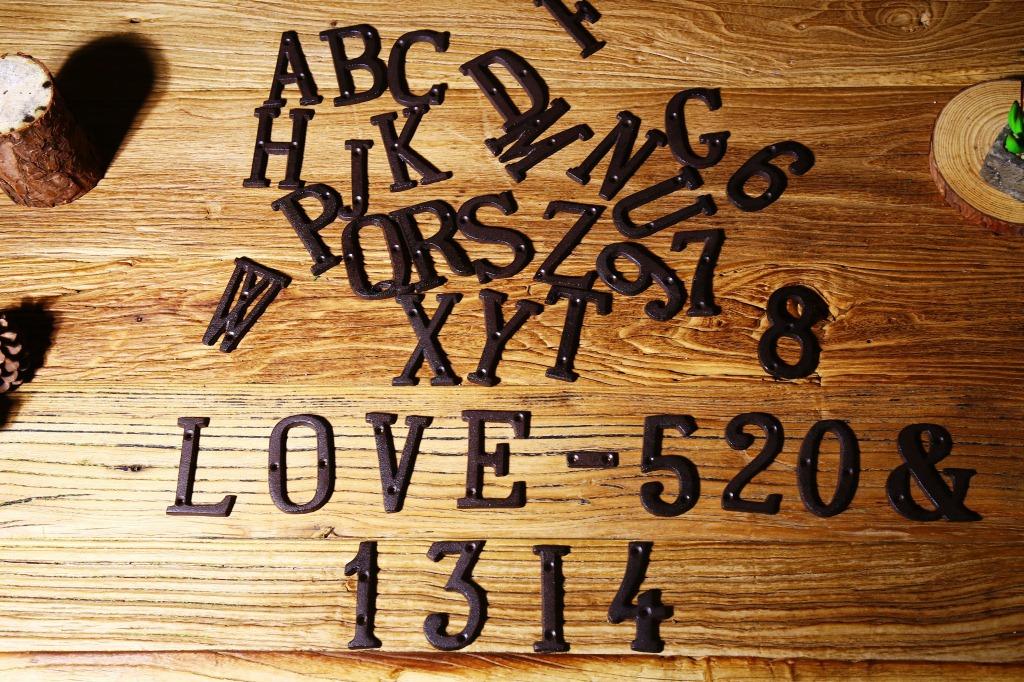 F
ABC D
HJK MNG6
PQRSZU
W 97
XYT 8
LOVE-520&
13I4